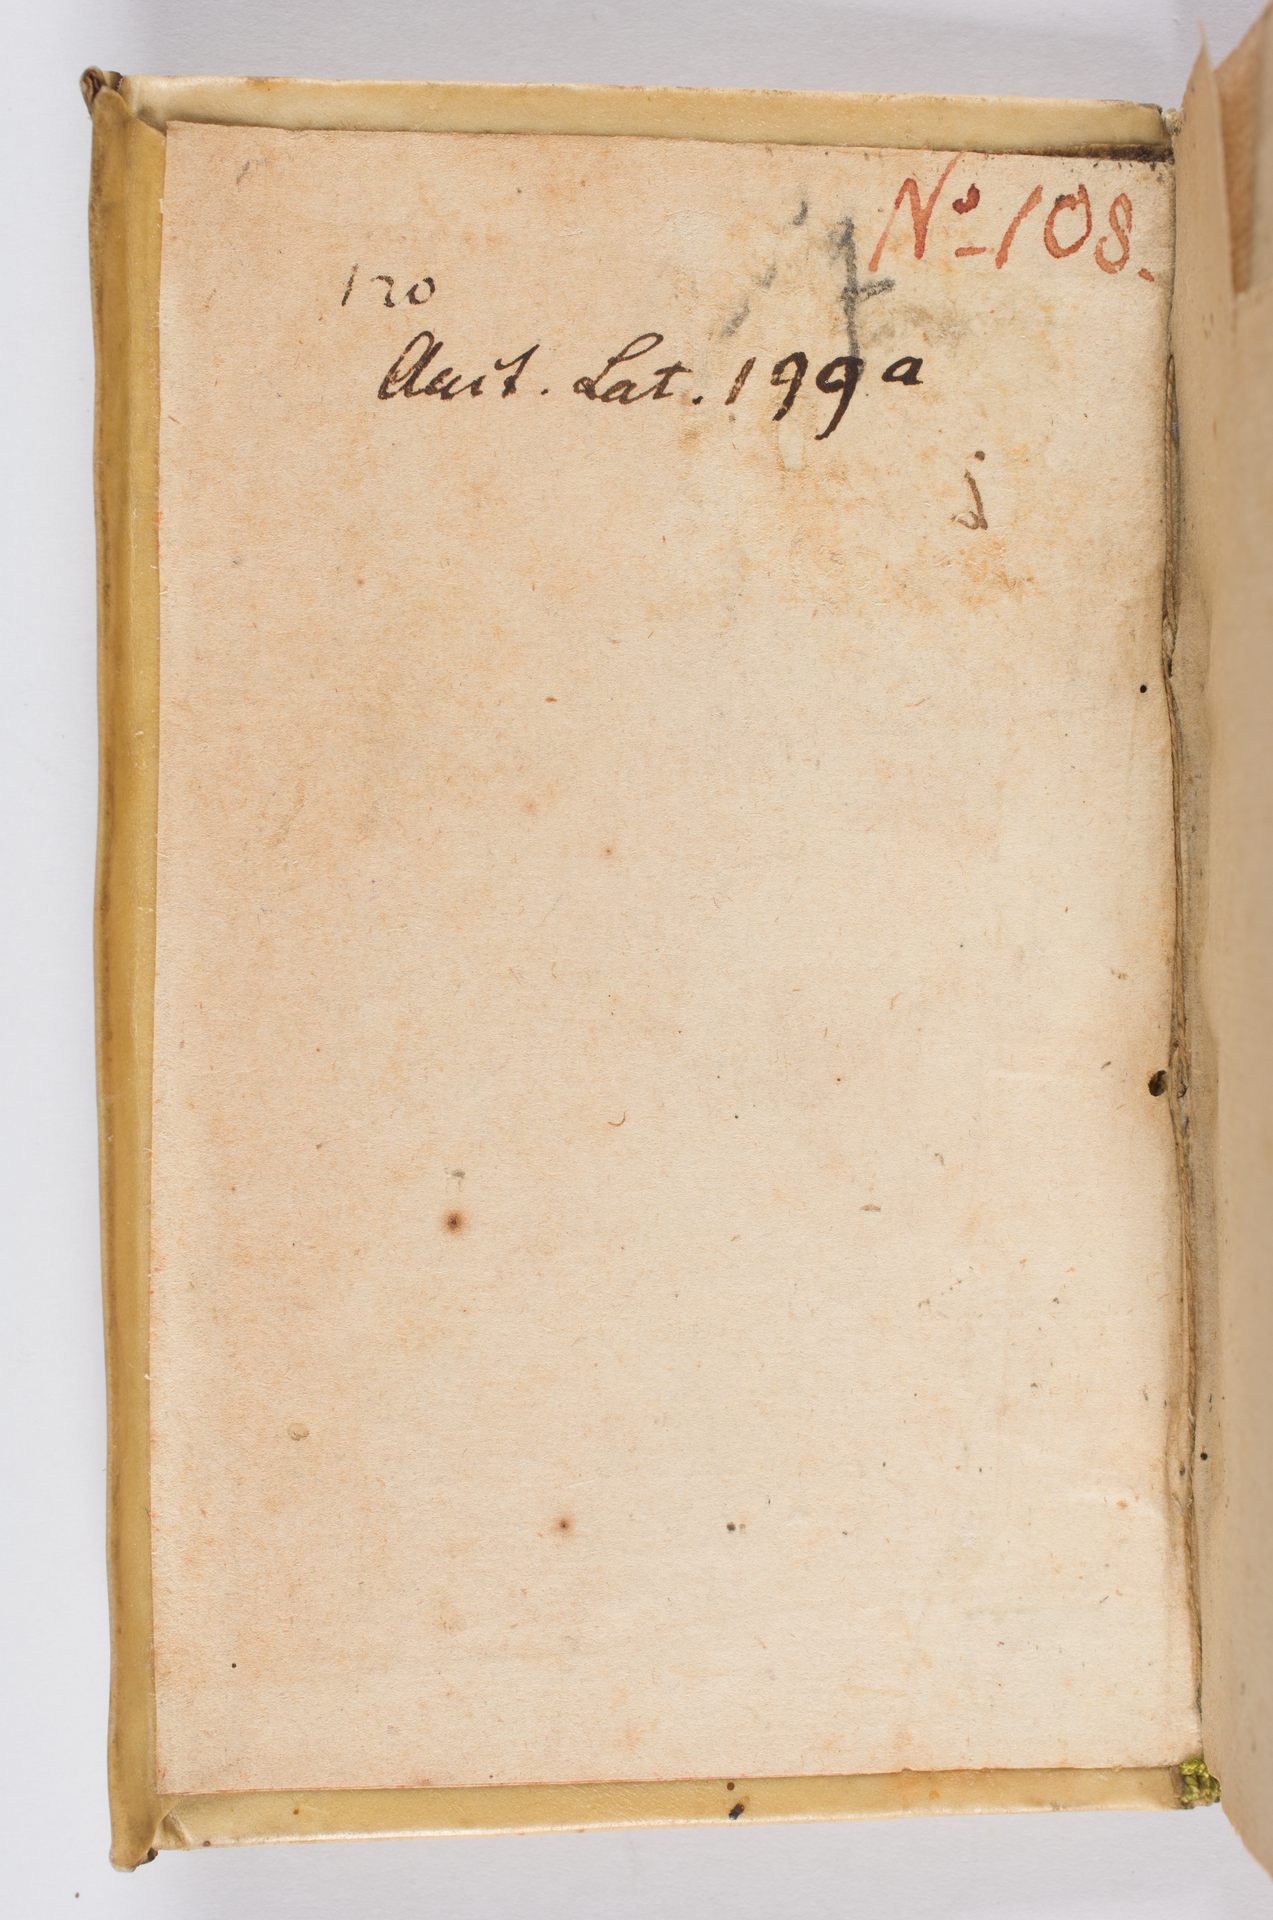 No 108.
120
Auct. Lat. 199a